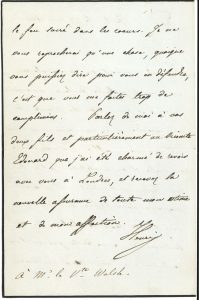 le feu sacré dans les cœurs. Je ne
vous reprocherai qu'une chose, quoique
vous puissiez dire pour vous en défendre,
c'est que vous me faites trop de
complimens. Parlez de moi à vos
deux fils et particulièrement au Vicomte
Edouard que j'ai été charmé de revoir
avec vous à Londres, et recevez la
nouvelle assurance de toute mon estime
et de mon affection.
Henri
à Mr. le Vte Walsh.